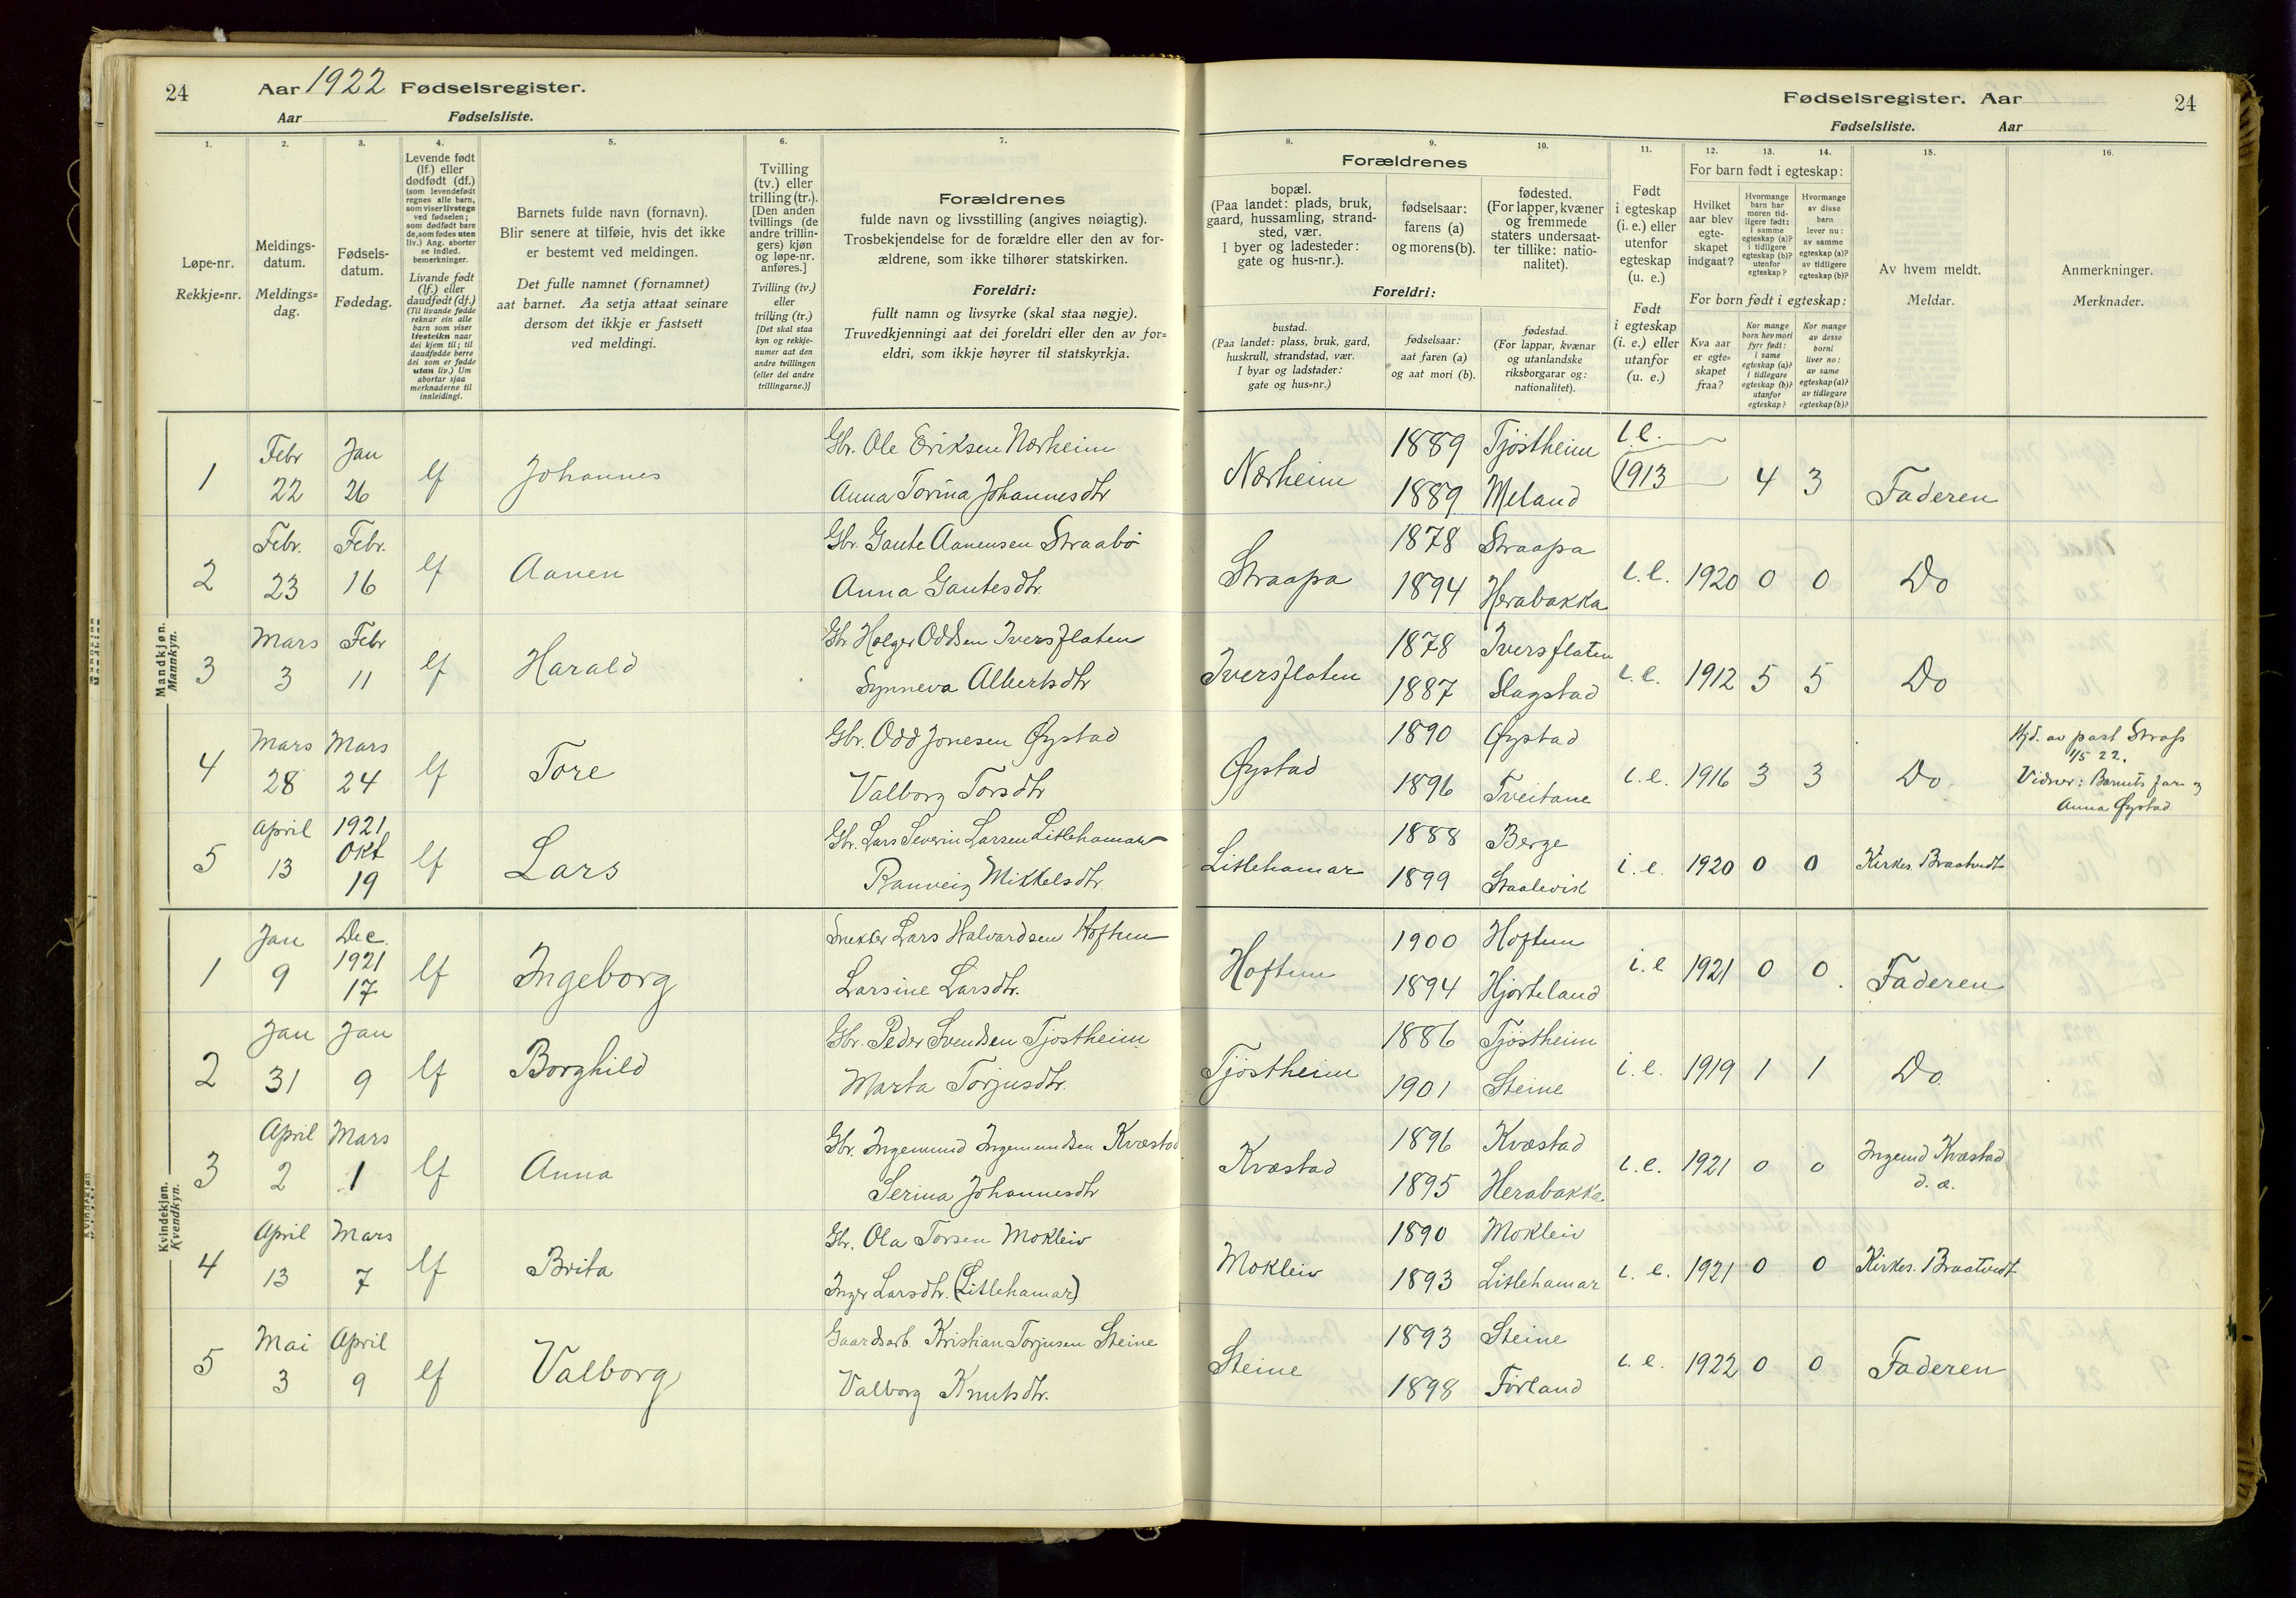 24
Aar 1922 Fødselsregister.
Aar Fødselsliste.
1. 2. 3. 4. 5. 6. 7.
Løpe-nr.
Rekkje=nr.
Meldings-
datum.
Meldings=
dag.
Fødsels-
datum.
Fødedag.
Levende født
(lf.) eller
dødfødt (df.)
(som levendefødt
regnes alle barn,
som viser livstegn
ved fødselen;
som dødfødt bare
de, som fødes uten
liv.) Ang. aborter
se indled.
bemerkninger.
Livande født
(lf.) eller
daudfødt (df.)
(Til livande fødde
reknar ein alle
barn som viser
livsteikn naar
dei kjem til; til
daudfødde berre
dei som er fødde
utan liv.) Um
abortar sjaa
merknaderne til
innleidingi.
Barnets fulde navn (fornavn).
Blir senere at tilføie, hvis det ikke
er bestemt ved meldingen.
Det fulle namnet (fornamnet)
aat barnet. Aa setja attaat seinare
dersom det ikkje er fastsett
ved meldingi.
Tvilling
(tv.) eller
trilling (tr.).
[Den anden
tvillings (de
andre trillin-
gers) kjøn
og løpe-nr.
anføres.]
Tvilling (tv.)
eller
trilling (tr.)
[Det skal staa
kyn og rekkje-
numer aat den
andre tvillingen
(eller dei andre
trillingarne.)]
Forældrenes
fulde navn og livsstilling (angives nøiagtig).
Trosbekjendelse for de forældre eller den av for-
ældrene, som ikke tilhører statskirken.
Foreldri:
fullt namn og livsyrke (skal staa nøgje).
Truvedkjenningi aat dei foreldri eller den av for=
eldri, som ikkje høyrer til statskyrkja.
Mandkjøn.
Mannkyn.
1 Febr 22 Jan 26 lf Johannes Gbr. Ole Eriksen Nørheim
Anna Torina Johannesdtr
2 Febr. 23 Febr. 16 lf Aanen Gbr. Gaute Aanensen Straabø
Anna Gautesdtr.
3 Mars 3 Febr 11 lf Harald Gbr Holger Oddsen Iversflaten
Synneva Albertsdtr
4 Mars 28 Mars 24 lf Tore Gbr. Odd Jonesen Øystad
Valborg Torsdtr
5 April 13 1921 Okt 19 lf Lars Gbr. Lars Severin Larsen Litlehamar
Ranveig Mikkelsdtr.
Kvindekjøn.
Kvendkyn.
1 Jan 9 Dec. 1921 17 lf Ingeborg Snekker Lars Halvardsen Hoftun
Larsine Larsdtr.
2 Jan 31 Jan 9 lf Borghild Gbr. Peder Svendsen Tjøstheim
Marta Torjusdtr.
3 April 2 Mars 1 lf Anna Gbr. Ingemund Ingemundsen Kvæstad
Serina Johannesdtr
4 April 13 Mars 7 lf Brita Gbr. Ola Torsen Mokleiv
Inger Larsdtr. (Litlehamar)
5 Mai 3 April 9 lf Valborg Gaardsarb. Kristian Torjusen Steine
Valborg Knutsdtr.
Fødselsregister. Aar 24
Fødselsliste. Aar
8. 9. 10. 11. 12. 13. 14. 15. 16.
Forældrenes
bopæl.
(Paa landet: plads, bruk,
gaard, hussamling, strand-
sted, vær.
I byer og ladesteder:
gate og hus-nr.).
fødselsaar:
farens (a)
og morens (b).
fødested.
(For lapper, kvæner
og fremmede
staters undersaat-
ter tillike: natio-
nalitet).
Foreldri:
bustad.
(Paa landet: plass, bruk, gard,
huskrull, strandstad, vær.
I byar og ladstader:
gate og hus=nr.)
fødselsaar:
aat faren (a)
og aat mori (b).
fødestad.
(For lappar, kvænar
og utanlandske
riksborgarar og:
nationalitet).
Født
i egteskap
(i. e.) eller
utenfor
egteskap
(u. e.)
Født
i egteskap
(i. e.) eller
utanfor
(u. e.)
For barn født i egteskap:
Hvilket
aar blev
egte-
skapet
indgaat?
Hvormange
barn har
moren tid-
ligere født:
i samme
egteskap (a)?
i tidligere
egteskap (b)?
utenfor
egteskap?
Hvormange
av disse
barn
lever nu:
av samme
egteskap (a)?
av tidligere
egteskap (b)?
For born født i egteskap:
Kva aar
er egte=
skapet
fraa?
Kor mange
born hev mori
fyrr født:
i same
egteskap (a)?
i tidlegare
egteskap (b)?
utanfor
egteskap?
Kor mange
av desse
borni
liver no:
av same
egteskap (a)?
av tidlegare
egteskap (b)?
Av hvem meldt.
Meldar.
Anmerkninger.
Merknader.
Nørheim 1889 Tjøstheim i.e. 1913 4 3 Faderen
1889 Meland
Straapa 1878 Straapa i.e. 1920 0 0 Do
1894 Herabakka
Iversflaten 1878 Iversflaten i.e. 1912 5 5 Do
1887 Slagstad
Øystad 1890 Øystad i.e. 1916 3 3 Do
1896 Tveitane
Hjd. av past Strøfs
1/5 22.
Vidner: Barnets far og
Anna Øystad
Litlehamar 1888 Berge i.e. 1920 0 0 Kirkes. Braatvedt
1899 Staalevik
Hoftun 1900 Hoftun i.e 1921 0 0 Faderen
1894 Hjorteland
Tjøstheim 1886 Tjøstheim i.e. 1919 1 1 Do
1901 Steine
Kvæstad 1896 Kvæstad i.e. 1921 0 0 Ingemd Kvæstad
d. æ.
1895 Herabakka
Mokleiv 1890 Mokleiv i.e. 1921 0 0 Kirkes. Braatvedt
1893 Litlehamar
Steine 1893 Steine i.e. 1922 0 0 Faderen
1898 Førland